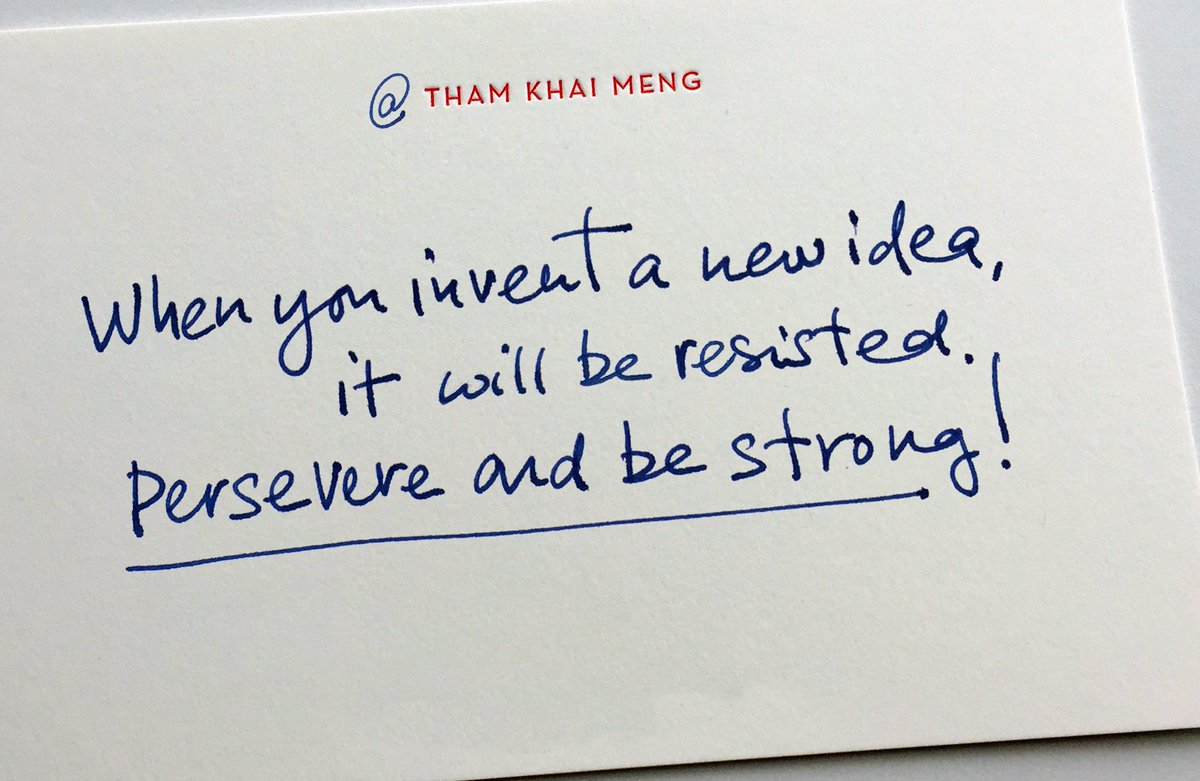 @ THAM KHAI MENG
When you invent a new idea,
it will be resisted.
Persevere and be strong!